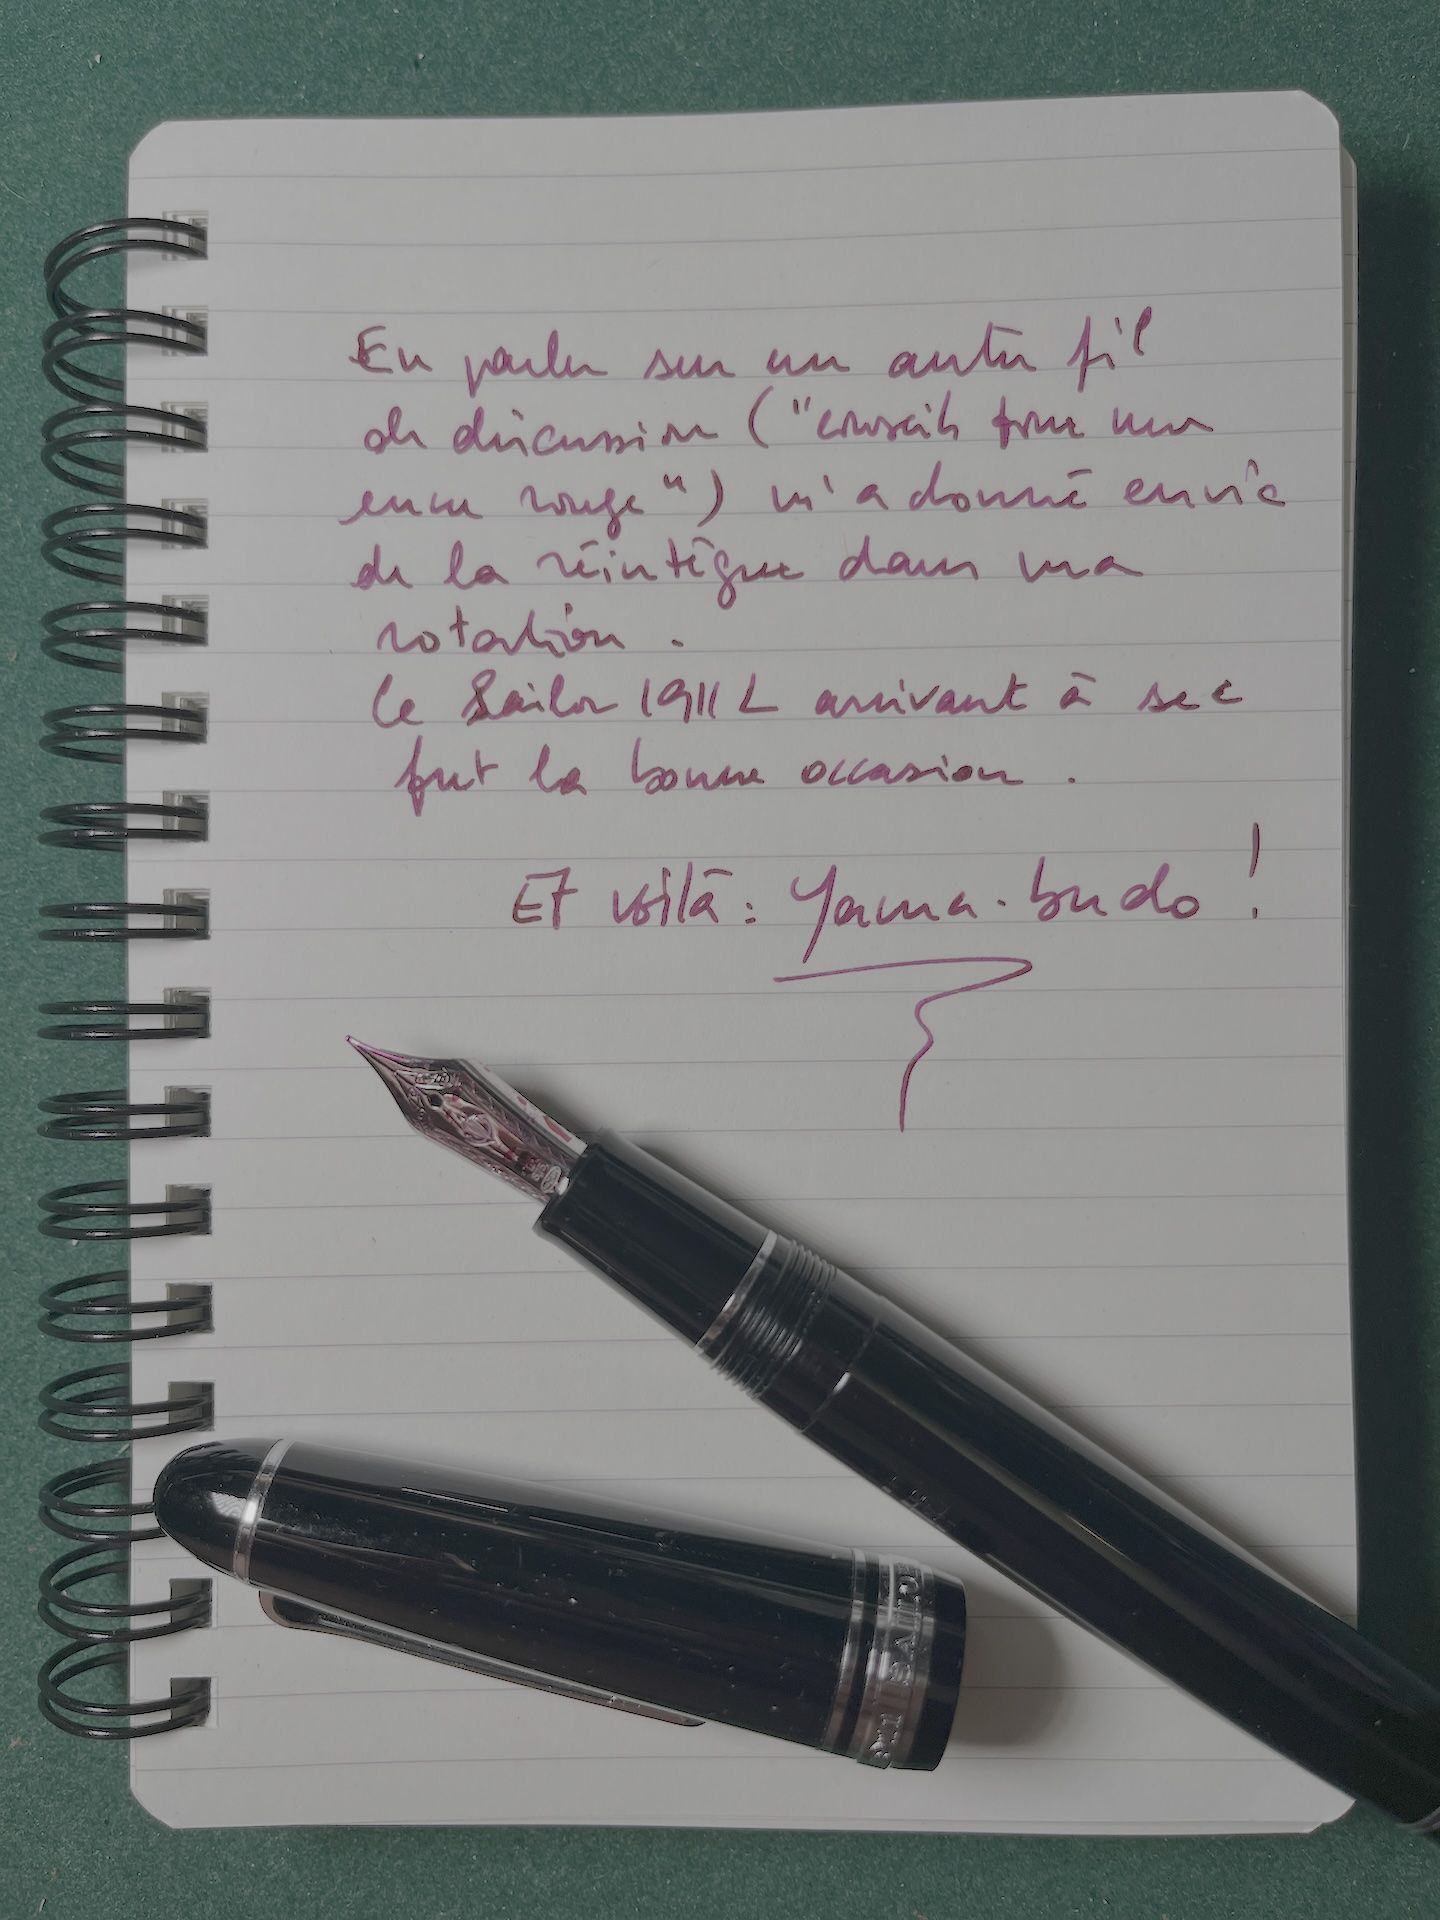 En parler sur un autre fil
de discussion ("conseils pour une
encre rouge") m'a donné envie
de la réintégrer dans ma
rotation.
Le Sailor 1911 L arrivant à sec
fut la bonne occasion.
Et voilà : Yama-budo !